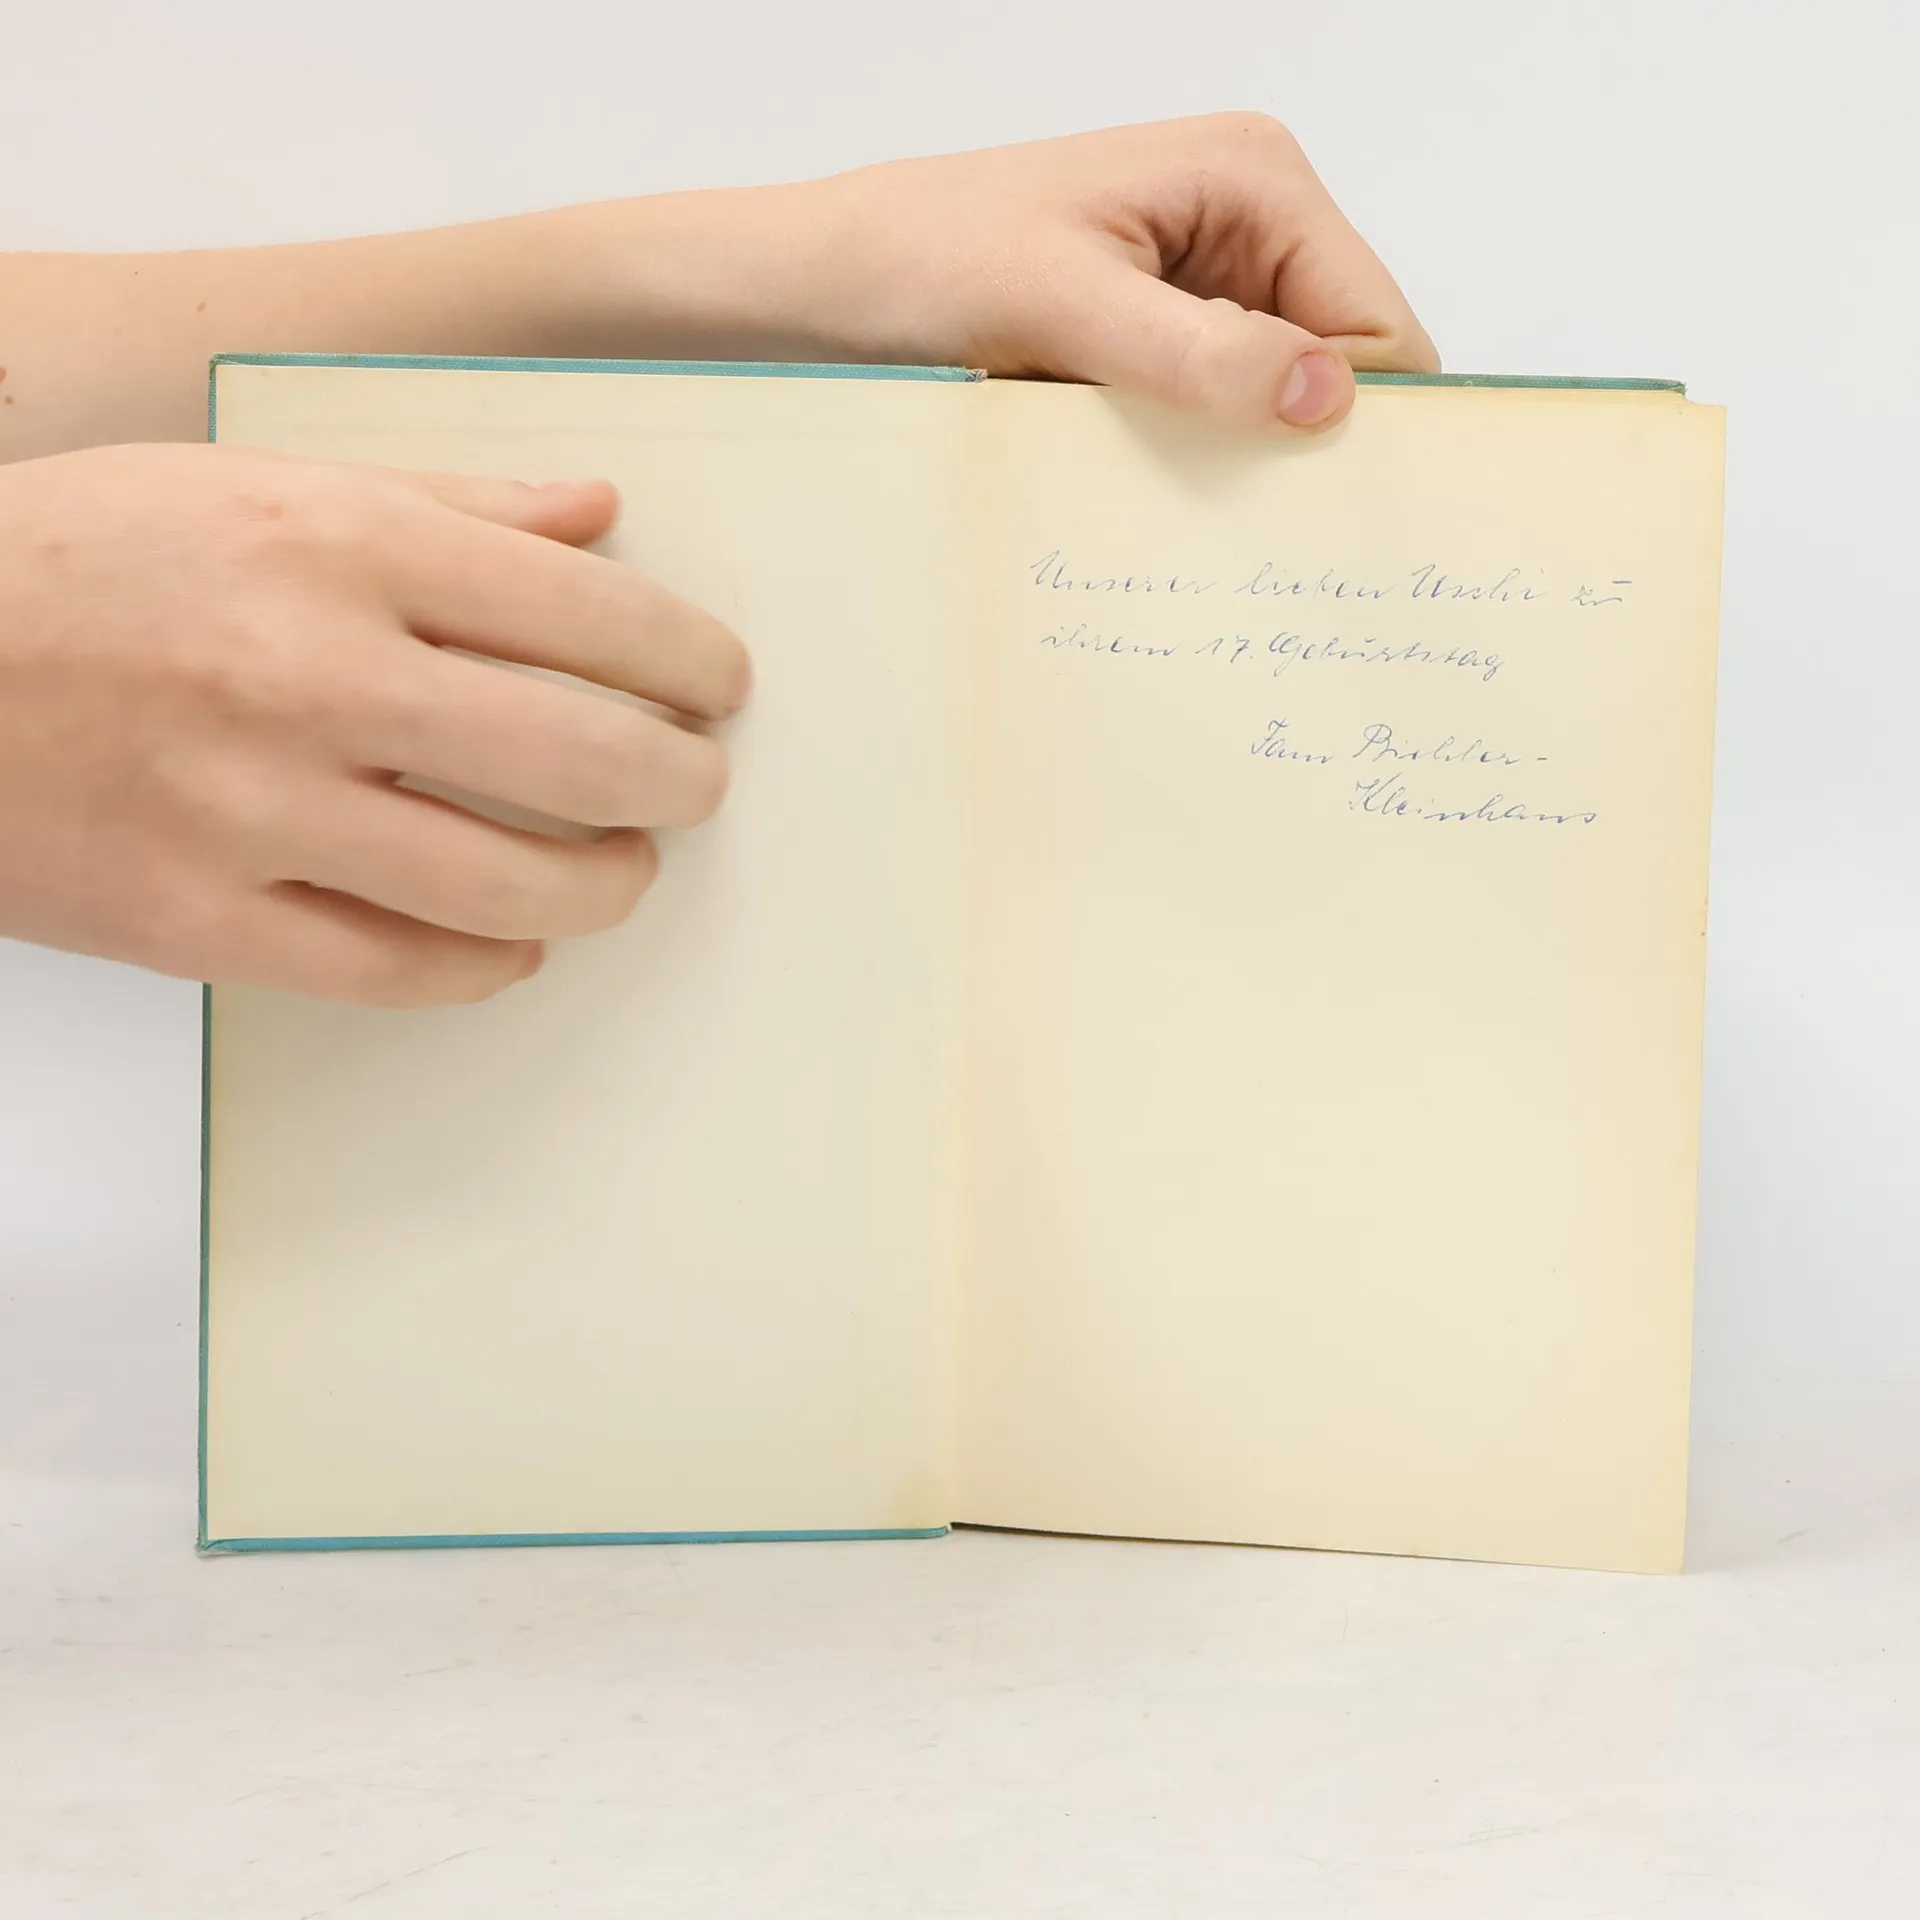 Unserer lieben Uschi zu
ihrem 17. Geburtstag
Fam
Kleinhans